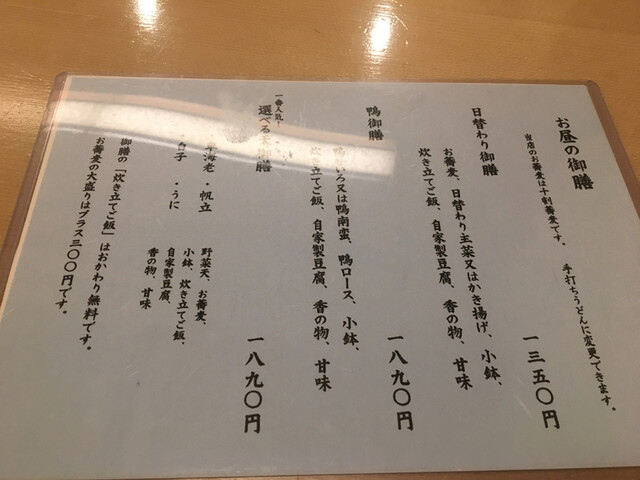 お昼の御膳
当店のお蕎麦は十割蕎麦です。 手打ちうどんに変更できます。
日替わり御膳 一三五〇円
お蕎麦、日替わり主菜又はかき揚げ、小鉢、
炊き立てご飯、自家製豆腐、香の物、甘味
鴨御膳 一八九〇円
いろ又は鴨南蛮、鴨ロース、小鉢、
炊き立てご飯、自家製豆腐、香の物、甘味
一番人気!
選べる 御膳 一八九〇円
海老 ・帆立
・白子 ・うに
野菜天、お蕎麦、
小鉢、炊き立てご飯、
自家製豆腐、
香の物、甘味
御膳の「炊き立てご飯」はおかわり無料です。
お蕎麦の大盛りはプラス三〇〇円です。